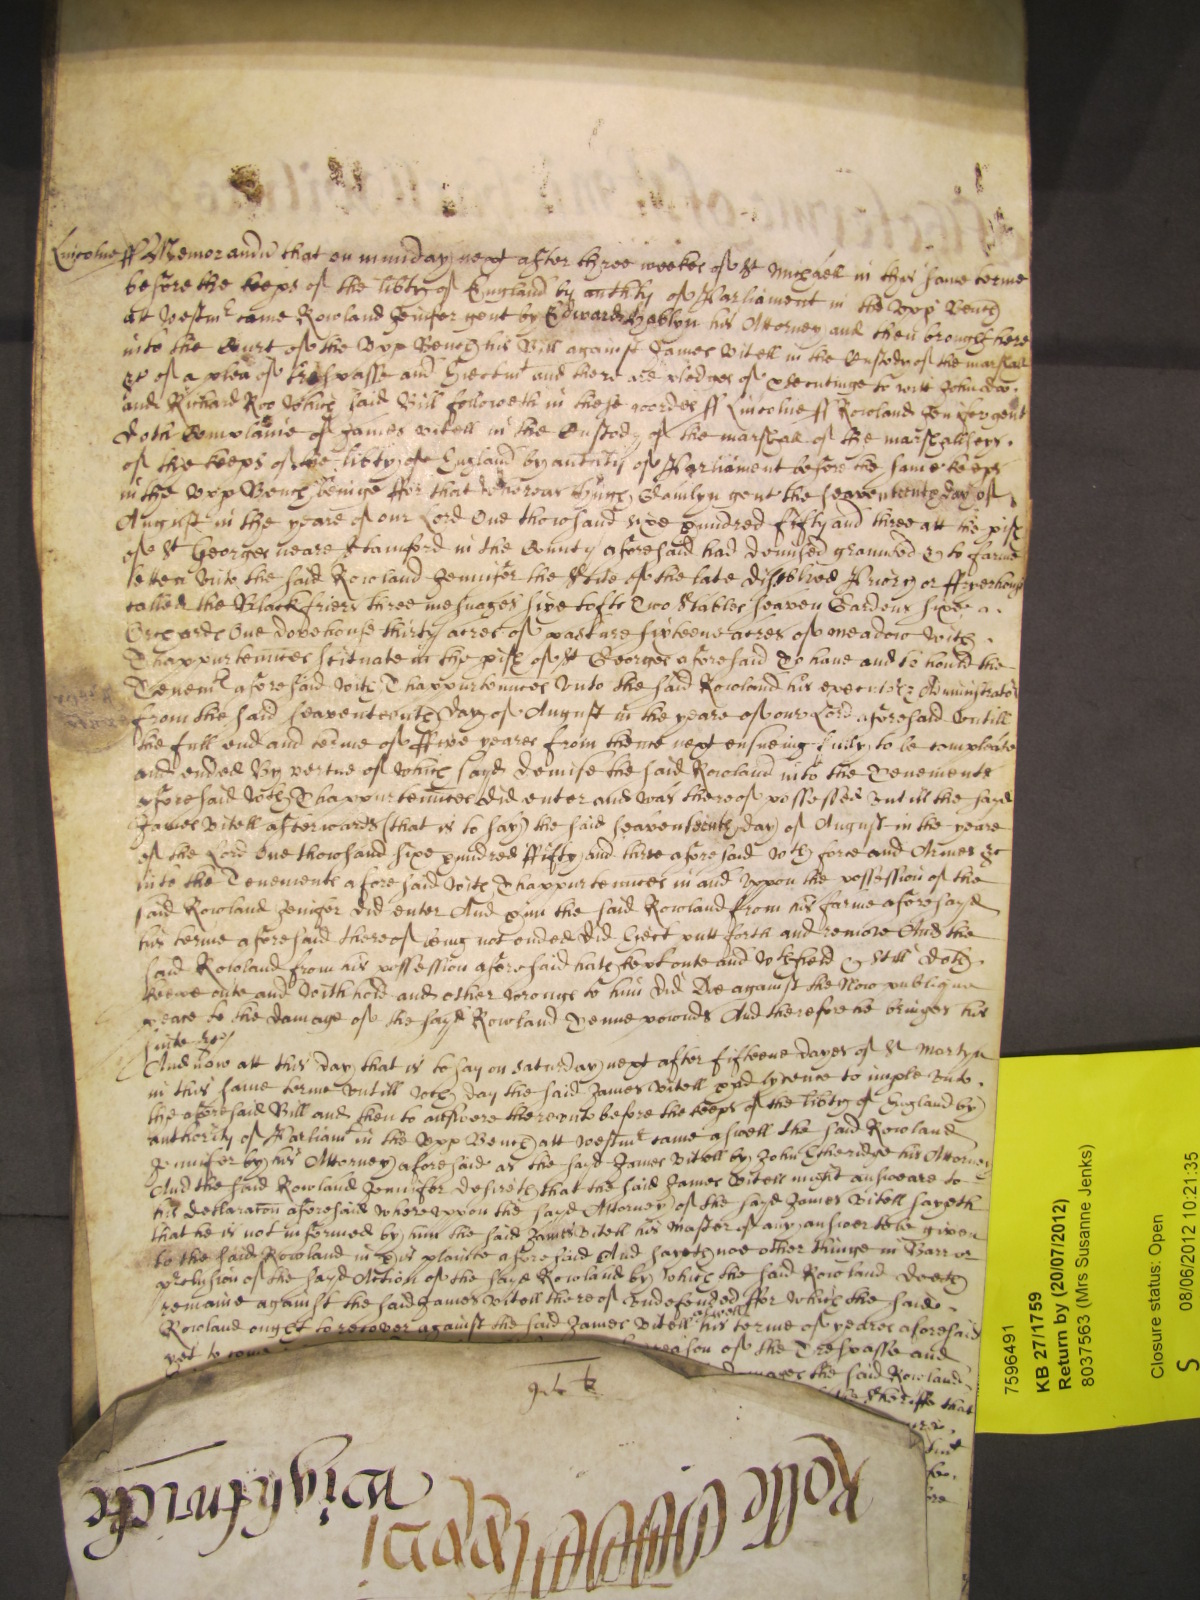 Lincolne ff Memorandu that on munday next after three weekes of St Michaell in this same terme
before the keeps of the libty of England by authty of Parliament in the Upp Bench
att Westmr came Rowland Jenifer gent by Edward Hablyn his Attorney and then brought here
into the Court of the Upp Bench his Bill against James Vitell in the Custody of the marshall
&c of a plea of trespasse and Eiectmt and there are pledges of psecutinge to witt John doo
and Richard Roo Which said Bill followeth in these wordes ff Lincolne ff Rowland Jenifer gent
doth Complaine of James Vitell in the Custody of the marshall of the marshallsey
of the keeps of the libty of England by authty of Parliament before the same keeps
in the Upp Bench beinge ffor that whereas Hugh Hamlyn gent the seaventeenth day of
August in the yeare of our Lord One thowsand sixe hundred fifty and three att the pish
of St Georges neare Stamford in the County aforesaid had demised graunted & to farme
letten unto the said Rowland Jennifer the Scite of the late disolved Priory or ffryerhouse
called the Black friers three mesuages sixe tofts Two stables seaven Gardens sixe
Orchards One dovehouse thirty acres of pasture sixteene acres of meadow with
Thappurtennces scituate in the pish of St Georges aforesaid To have and to hould the
Tenemts aforesaid with Thappurtennces unto the said Rowland his executors & Administrators
from the said seaventeenth day of August in the yeare of our Lord aforesaid untill
the full end and terme of ffive yeares from thence next ensueing fully to be compleate
and ended By vertue of which sayd demise the said Rowland into the Tenements
aforesaid with Thappurtennces did enter and was thereof possessed Untill the sayd
James Vitell afterwards (that is to say) the said seaventeenth day of August in the yeare
of the Lord One thowsand sixe hundred ffifty and three aforesaid with force and Armes &c
into the Tenements aforesaid with Thappurtennces in and uppon the possession of the
said Rowland Jenifer did enter And him the said Rowland from his farme aforesayd
his terme aforesaid thereof being not ended did Eiect putt forth and remove And the
said Rowland from his possession aforesaid hath kept oute and wthheld & still doth
keepe oute and withhold and other wronge to him did Doe against the Now publique
peace to the damage of the sayd Rowland Tenne pounds And therefore he bringes his
suite &c
And now att this day that is to say on Saturday next after fifteene dayes of St Martyn
in this same terme Untill wch day the said James Vitell hpd lycence to imple unto
the aforesaid Bill and then to answere thereunto before the keeps of the libty of England by
authority of Parliamt in the Upp Bench att Westmr came aswell the said Rowland
Jennifer by his Attorney aforesaid as the sayd James Vitell by John Etheridge his Attorney
And the said Rowland Jennifer desireth that the said James Vitell might answeare to
his declaraton aforesaid whereuppon the sayd Attorney of the sayd James Vitell sayeth
that he is not informed by him the said James Vitell his Master of any answer to be given
to the said Rowland in his plainte aforesaid And sayeth noe other thinge in Barr or
pclusion of the sayd Action of the sayd Rowland by which the said Rowland doeth
remaine against the said James Vitell thereof undefended ffor which the said
Rowland ought to recover against the said James Vitell aswell his terme of yeares aforesaid
yet to come reason of the Trespasse and
damages the said Rowland
the Sheriffe that
Rolle
wightwicke
7596491
KB 27/1759
Return by (20/07/2012)
8037563 (Mrs Susanne Jenks)
Closure status: Open
08/06/2012 10:21:35
S